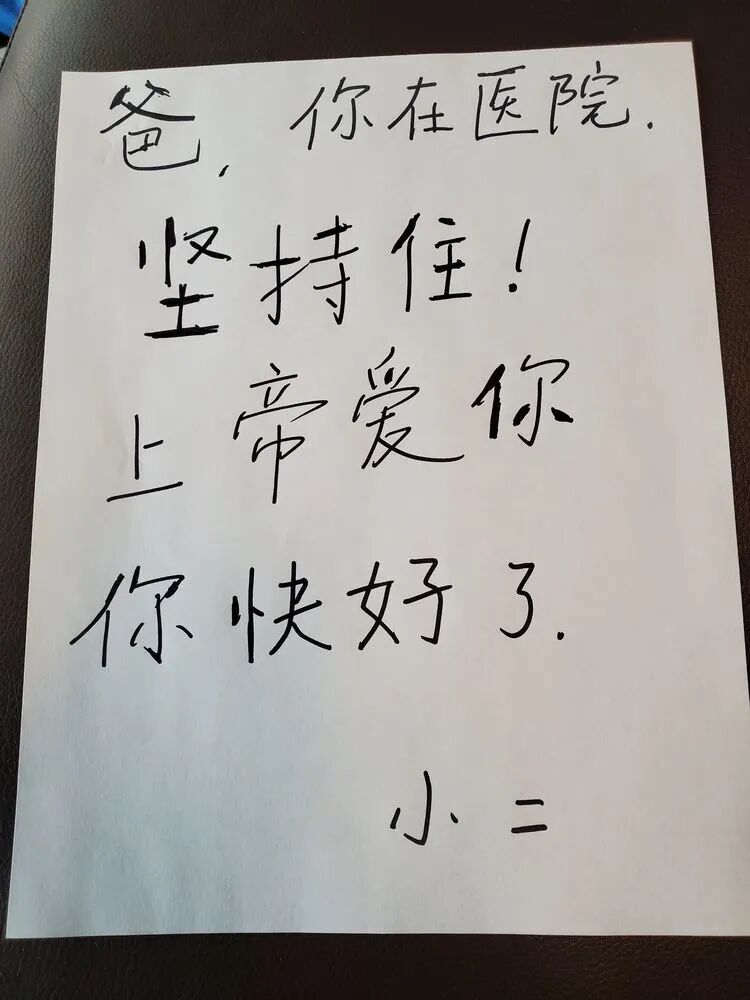 爸,你在医院.
坚持住!
上帝爱你
你快好了.
小二